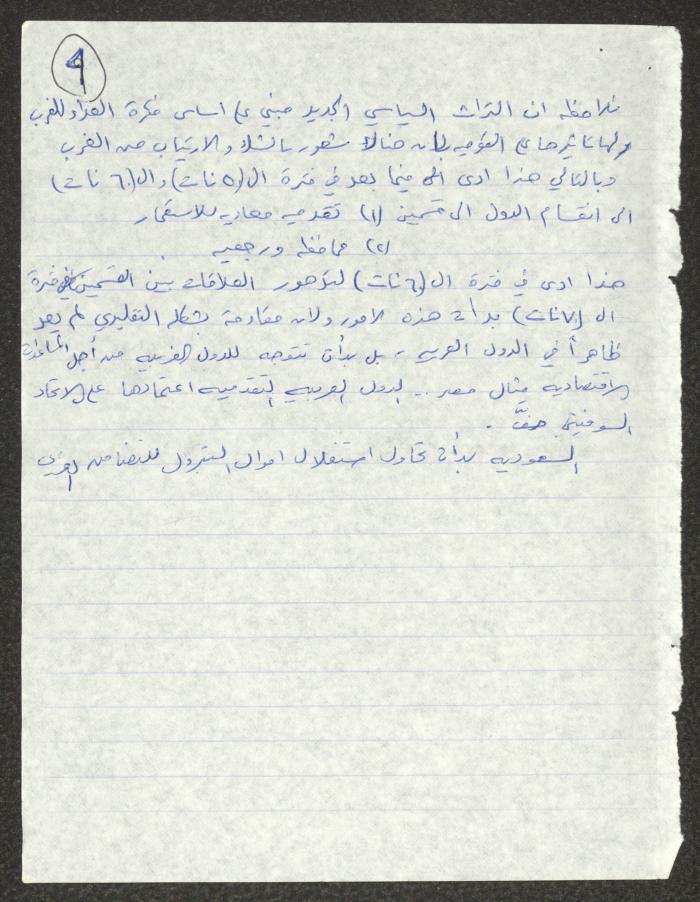 ٩
نلاحظ ان التراث السياسي الجديد مبني على اساس فكرة العداء للغرب
ولها تاثيرها على القوميه لأن هنالك شعور بالشك والارتياب من الغرب
وبالتالي هذا ادى الى فيما بعد في فترة ال (٥٠ نات) وال (٦٠ نات)
الى انقسام الدول الى قسمين (١) تقدميه معاديه للاستعمار
(٢) محافظه ورجعيه
هذا ادى في فترة ال (٦٠نات) لتدهور العلاقات بين القسمين في فترة
ال (٧٠نات) بدأت هذه الامور ولان مقاومة بشكله التقليدي لم يعد
ظاهراً في الدول العربيه، بل بدأت تتوجه للدول الغربيه من أجل المساعدات
الاقتصاديه مثال مصر .. الدول العربيه التقدميه اعتمادها على الاتحاد
السوفيتي خفَّ .
السعوديه بدأت تحاول استغلال اموال البترول للتضامن العربي